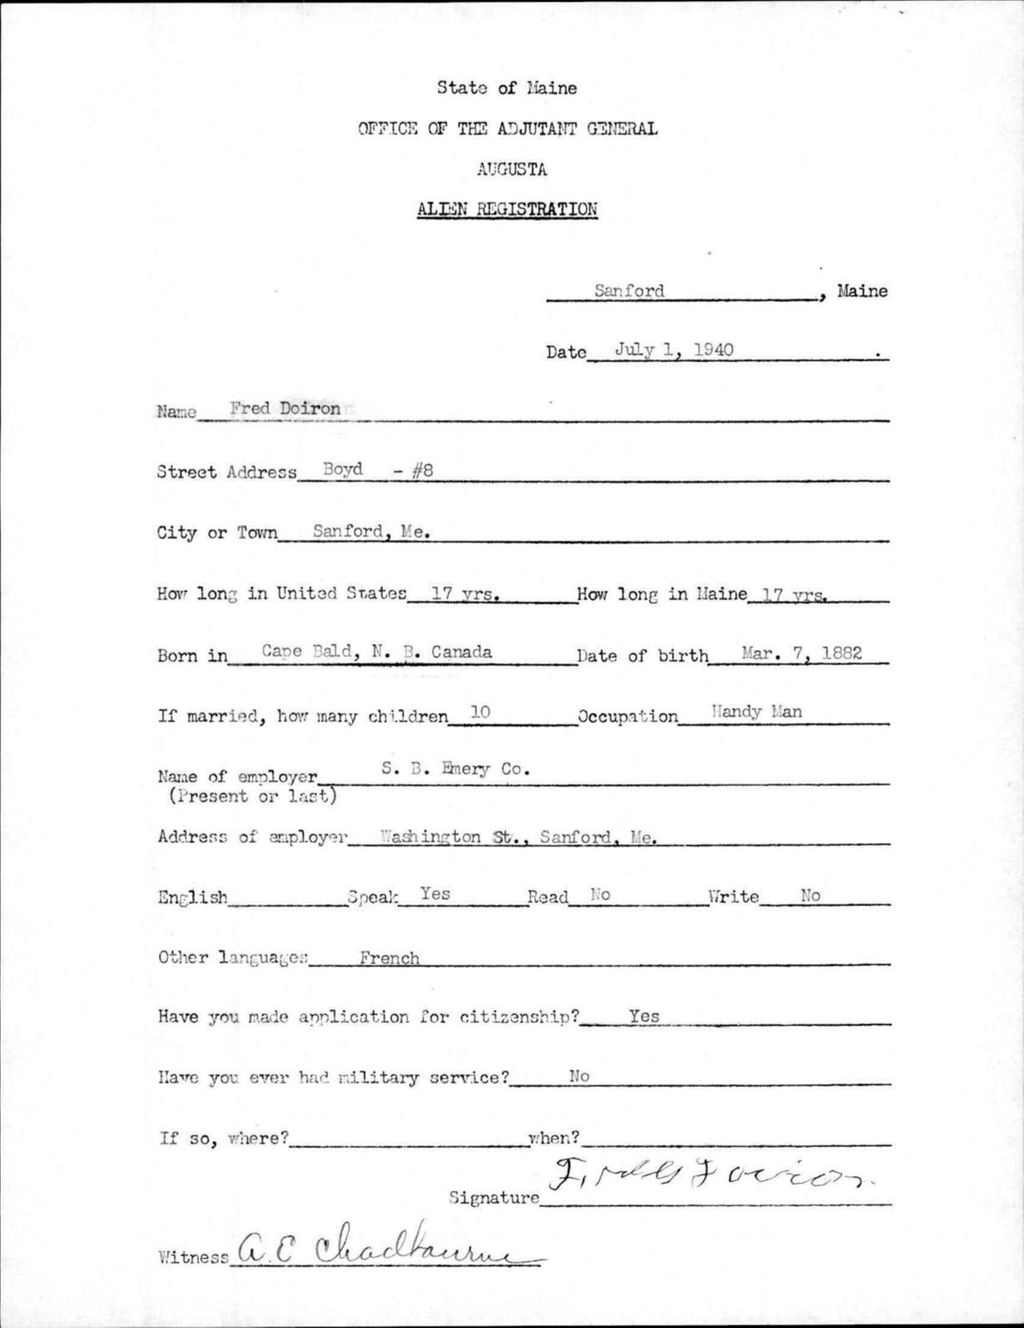 State of Maine
OFFICE OF THE ADJUTANT GENERAL
AUGUSTA
ALIEN REGISTRATION
Sanford, Maine
Date July 1, 1940.
Name Fred Doiron
Street Address Boyd - #8
City or Town Sanford, Me.
How long in United States 17 yrs. How long in Maine 17 yrs.
Born in Cape Bald, N. B. Canada Date of birth Mar. 7, 1882
If married, how many children 10 Occupation Handy Man
Name of employer S. B. Emery Co.
(Present or last)
Address of employer Washington St., Sanford, Me.
English Speak Yes Read No Write No
Other languages French
Have you made application for citizenship? Yes
Have you ever had military service? No
If so, where? when?
Signature
Witness A. E Chadbourne